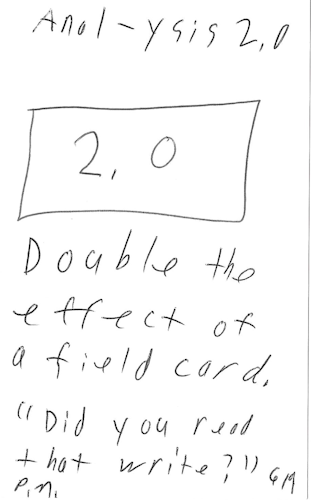 Anal-ysis 2.0
2.0
Double the
effect of
a field card.
"Did you read
that write?"
P.M.